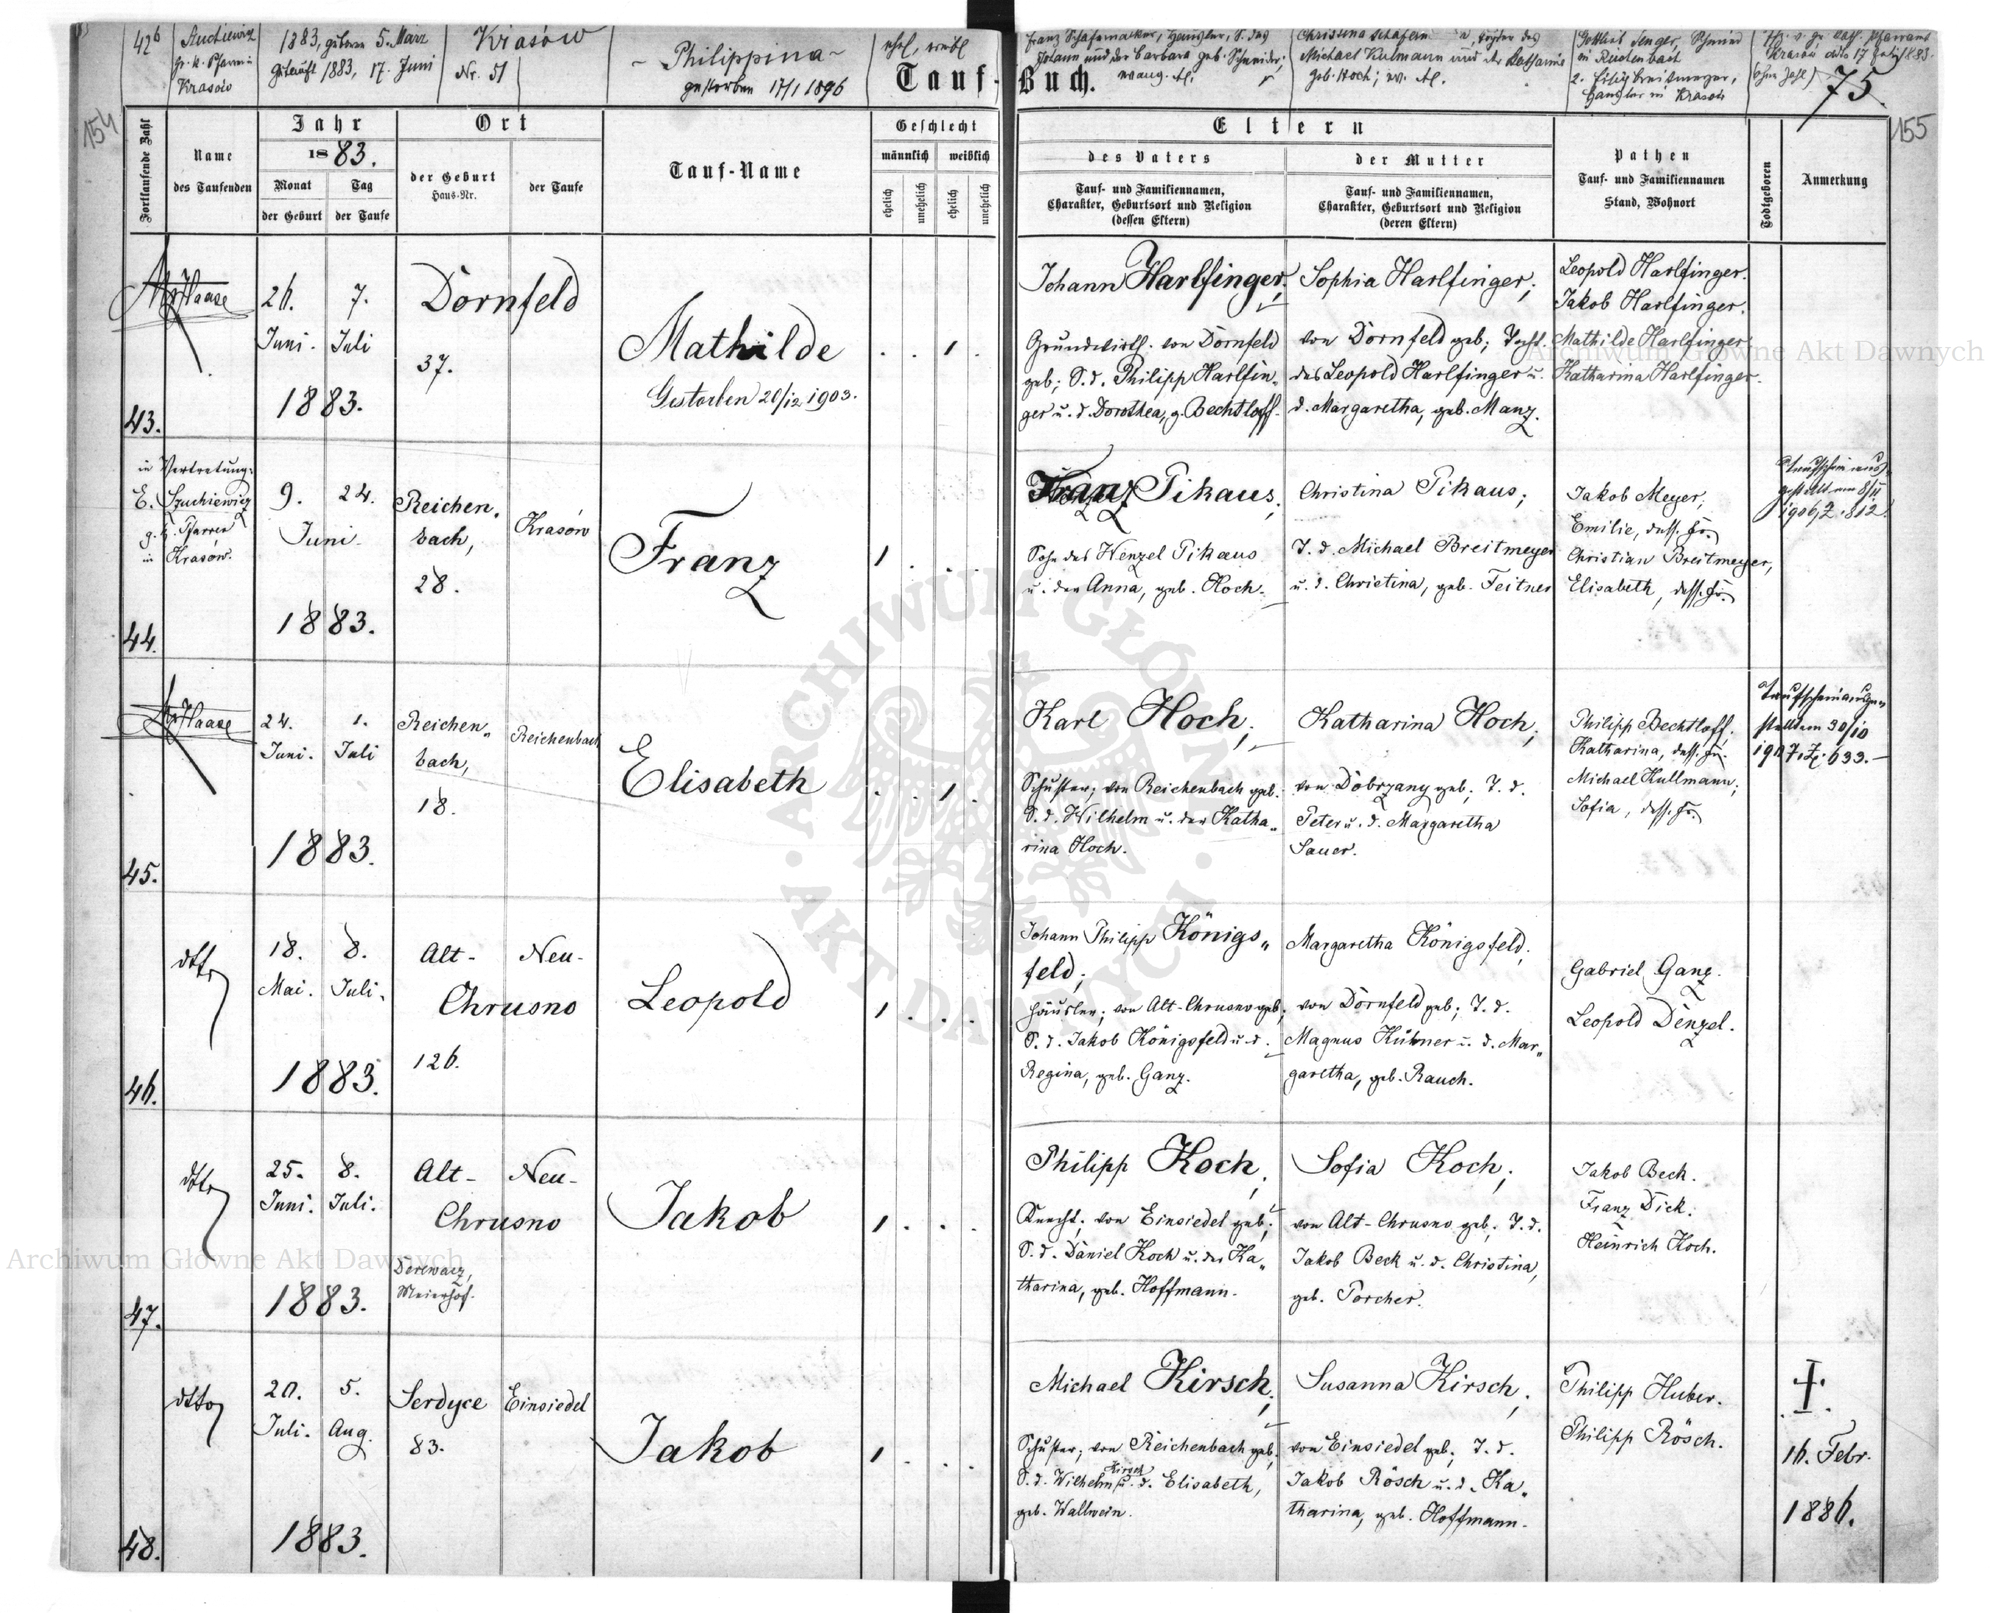 42b
Szuchiewicz
gr. k. Pfarrer in
Krasów
1883, geboren 5. März
getauft 1883, 17. Juni
Krasów
Nr. 51
- Philippina -
gestorben 17/1 1896
ehel. weibl
Tauf-Buch.
Franz Schafenacker, Häusler, S. des
Johann und der Barbara geb. Schneider;
evang. A.
Michael Kulmann und der Katharina
geb. Koch; ev. A.
Gottlieb Senger, Schmied
in Reichenbach
2.
Häusler in Krasów
Krasów
75.
154
155
Fortlaufende Zahl
Name
des Taufenden
Jahr
1883.
Monat
der Geburt
Tag
der Taufe
Ort
der Geburt
Haus-Nr.
der Taufe
Tauf-Name
Geschlecht
männlich
weiblich
ehelich
unehelich
ehelich
unehelich
Eltern
des Vaters
Tauf- und Familiennamen,
Charakter, Geburtsort und Religion
(dessen Eltern)
der Mutter
Tauf- und Familiennamen,
Charakter, Geburtsort und Religion
(deren Eltern)
Pathen
Tauf- und Familiennamen
Stand, Wohnort
Todtgeboren
Anmerkung
43.
Haase
26. 7.
Juni. Juli
1883.
Dornfeld
37.
Mathilde
Gestorben 20/12 1903.
. . 1 .
Johann Harlfinger;
Grundwirth. von Dornfeld
geb; S. d. Philipp Harlfin-
ger u. d. Dorothea, g. Bechtloff.
Sophia Harlfinger;
von Dornfeld geb; Tocht.
des Leopold Harlfinger u.
d. Margaretha, geb. Manz.
Leopold Harlfinger.
Jakob Harlfinger.
Mathilde Harlfinger
Katharina Harlfinger.
44.
in Vertretung:
E. Szuchiewicz
g. k. Pfarrer
in Krasów.
9. 24.
Juni.
1883.
Reichen-
bach,
28.
Krasów
Franz
1 . . .
Franz Pikaus;
Sohn des Wenzel Pikaus
u. der Anna, geb. Koch.
Christina Pikaus;
T. d. Michael Breitmeyer
u. d. Christina, geb. Feitner
Jakob Meyer;
Emilie, dess. Fr.
Christian Breitmeyer,
Elisabeth, dess. Fr.
Taufschein aus-
gestellt am 8/II
1906, Z. 812.
45.
Haase
24. 1.
Juni. Juli
1883.
Reichen-
bach,
18.
Reichenbach
Elisabeth
. . 1 .
Karl Hoch;
Schuster; von Reichenbach geb.
S. d. Wilhelm u. der Katha-
rina Hoch.
Katharina Hoch;
von Dobrzany geb; T. d.
Peter u. d. Margaretha
Sauer.
Philipp Bechtloff.
Katharina, dess. Fr.
Michael Kullmann;
Sofia, dess. Fr.
Taufschein ausge-
stellt am 30/10
1907, Z. 633.-
46.
dtto
18. 8.
Mai. Juli.
1883.
Alt- Neu-
Chrusno
126.
Leopold
1 . . .
Johann Philipp Königs-
feld;
Häusler; von Alt-Chrusno geb;
S. d. Jakob Königsfeld u. d.
Regina, geb. Ganz.
Margaretha Königsfeld;
von Dornfeld geb; T. d.
Magnus Hübner u. d. Mar-
garetha, geb. Rauch.
Gabriel Ganz.
Leopold Denzel.
47.
dtto
25. 8.
Juni. Juli.
1883.
Alt- Neu-
Chrusno
Derewacz,
Meierhof.
Jakob
1 . . .
Philipp Koch;
Knecht; von Einsiedel geb;
S. d. Daniel Koch u. der Ka-
tharina, geb. Hoffmann.
Sofia Koch;
von Alt-Chrusno geb; T. d.
Jakob Beck u. d. Christina,
geb. Porcher.
Jakob Beck.
Franz Dick.
Heinrich Koch.
48.
dtto
20. 5.
Juli. Aug.
1883.
Serdyce
83.
Einsiedel
Jakob
1 . . .
Michael Kirsch;
Schuster; von Reichenbach geb;
S. d. Wilhelm Kirsch u. d. Elisabeth,
geb. Wallwein.
Susanna Kirsch;
von Einsiedel geb; T. d.
Jakob Rösch u. d. Ka-
tharina, geb. Hoffmann.
Philipp Huber.
Philipp Rösch.
16. Febr.
1886.
Archiwum Główne Akt Dawnych
Archiwum Główne Akt Dawnych
ARCHIWUM GŁÓWNE · AKT DAWNYCH ·